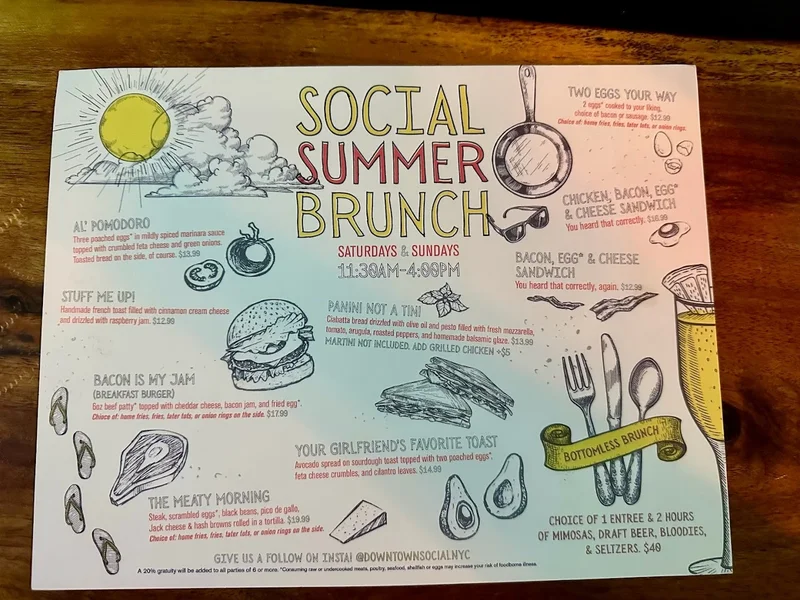 SOCIAL
SUMMER
BRUNCH
SATURDAYS & SUNDAYS
11:30AM-4:00PM
TWO EGGS YOUR WAY
2 eggs* cooked to your liking,
choice of bacon or sausage. $12.99
Choice of: home fries, fries, tater tots, or onion rings.
CHICKEN, BACON, EGG*
& CHEESE SANDWICH
You heard that correctly. $16.99
BACON, EGG* & CHEESE
SANDWICH
You heard that correctly, again. $12.99
AL' POMODORO
Three poached eggs* in mildly spiced marinara sauce
topped with crumbled feta cheese and green onions.
Toasted bread on the side, of course. $13.99
STUFF ME UP!
Handmade french toast filled with cinnamon cream cheese
and drizzled with raspberry jam. $12.99
PANINI NOT A TINI
Ciabatta bread drizzled with olive oil and pesto filled with fresh mozzarella,
tomato, arugula, roasted peppers, and homemade balsamic glaze. $13.99
MARTINI NOT INCLUDED. ADD GRILLED CHICKEN +$5
BACON IS MY JAM
(BREAKFAST BURGER)
6oz beef patty* topped with cheddar cheese, bacon jam, and fried egg*.
Choice of: home fries, fries, tater tots, or onion rings on the side. $17.99
YOUR GIRLFRIEND'S FAVORITE TOAST
Avocado spread on sourdough toast topped with two poached eggs*,
feta cheese crumbles, and cilantro leaves. $14.99
THE MEATY MORNING
Steak, scrambled eggs*, black beans, pico de gallo,
Jack cheese & hash browns rolled in a tortilla. $19.99
Choice of: home fries, fries, tater tots, or onion rings on the side.
BOTTOMLESS BRUNCH
CHOICE OF 1 ENTREE & 2 HOURS
OF MIMOSAS, DRAFT BEER, BLOODIES,
& SELTZERS. $40
GIVE US A FOLLOW ON INSTA! @DOWNTOWNSOCIALNYC
A 20% gratuity will be added to all parties of 6 or more. *Consuming raw or undercooked meats, poultry, seafood, shellfish or eggs may increase your risk of foodborne illness.